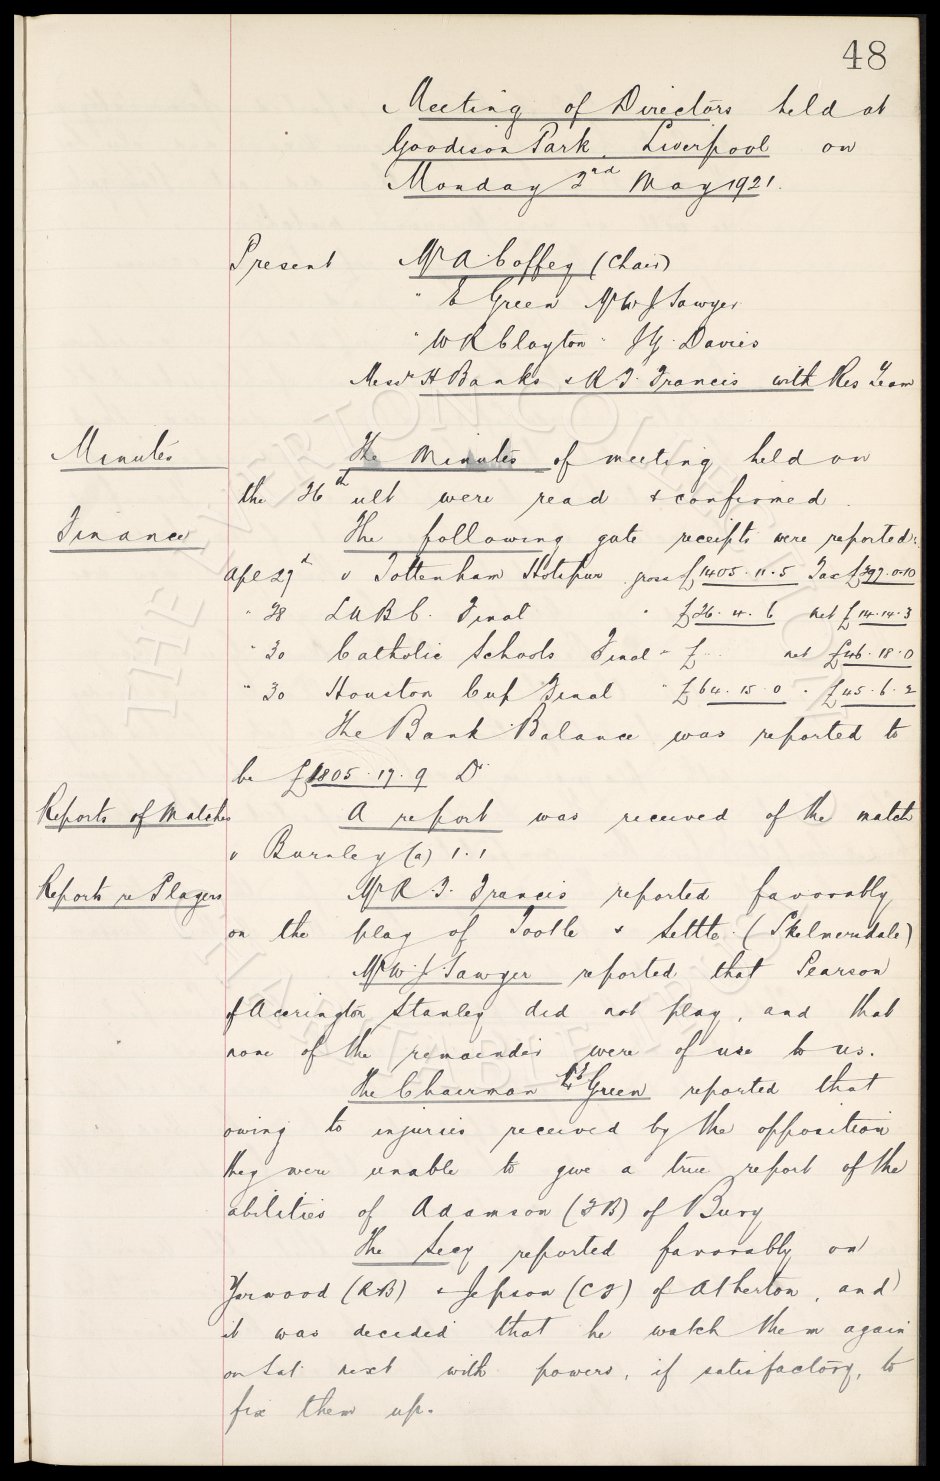 48
Meeting of Directors held at
Goodison Park, Liverpool on
Monday 2nd May 1921.
Present Mr A Coffey (Chair)
" E Green Mr W J Sawyer
" W R Clayton " J G Davies
Messrs H Banks & R T Francis with Res Team
Minutes The Minutes of meeting held on
the 26th ult were read & confirmed.
Finance The following gate receipts were reported:
Apl 29th v Tottenham Hotspur gross £1405.11.5 Tax £397.0.10
" 28 Final " £26.4.6 net £14.14.3
" 30 Catholic Schools Final " £ net £46.18.0
" 30 Houston Cup Final " £64.15.0 " £45.6.2
The Bank Balance was reported to
be £1805.19.9 Dr
Reports of Matches A report was received of the match
v Burnley (a) 1.1
Reports re Players Mr R.T. Francis reported favorably
on the play of Tootle & Settle (Skelmersdale)
Mr W.J. Sawyer reported that Pearson
of Accrington Stanley did not play, and that
none of the remainder were of use to us.
The Chairman & Mr Green reported that
owing to injuries received by the opposition
they were unable to give a true report of the
abilities of Adamson (FB) of Bury
The Secy reported favorably on
Yarwood (RB) & Jepson (CF) of Atherton, and
it was decided that he watch them again
on Sat next with powers, if satisfactory, to
fix them up.
THE EVERTON COLLECTION
CHARITABLE TRUST